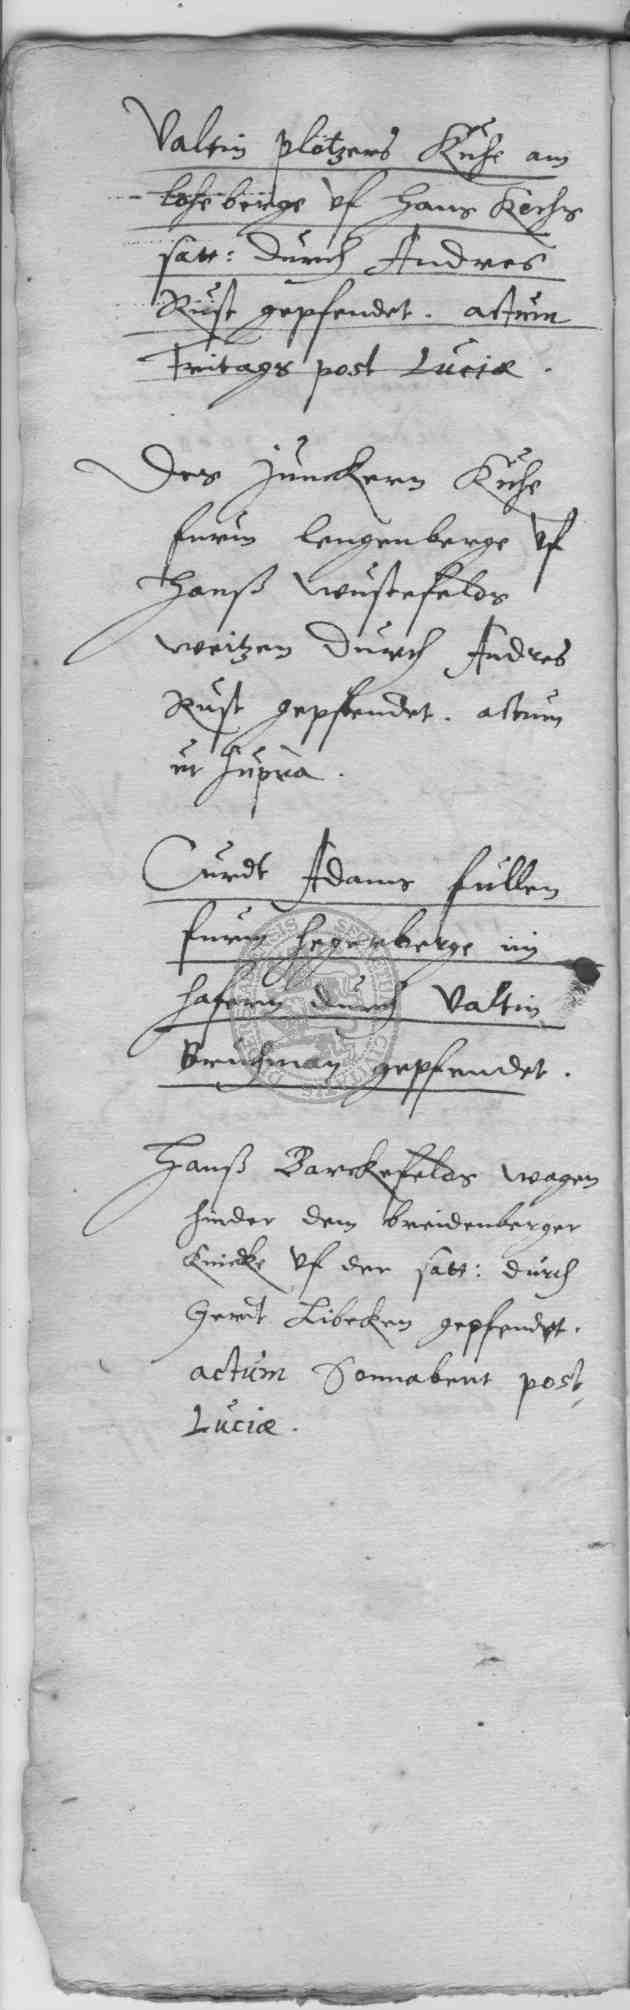 Valtin plötzers Kühe am
loheberge vf Hans Kochs
satt: durch Andres
Rust gepfendet. actum
Freitags post Luciæ.
Des Junckern Kühe
furm lengenberge vf
Hanß wüstefelds
weitzen durch Andres
Rust gepfendet. actum
ut supra.
Curdt Adams füllen
furm hegerberge im
hafern durch Valtin
Bruchman gepfendet.
Hanß Barckefelds wagen
hinder dem breidenberger
Knicke vf der satt: durch
Gerut Libecken gepfendet.
actum Sonnabent post
Luciæ.